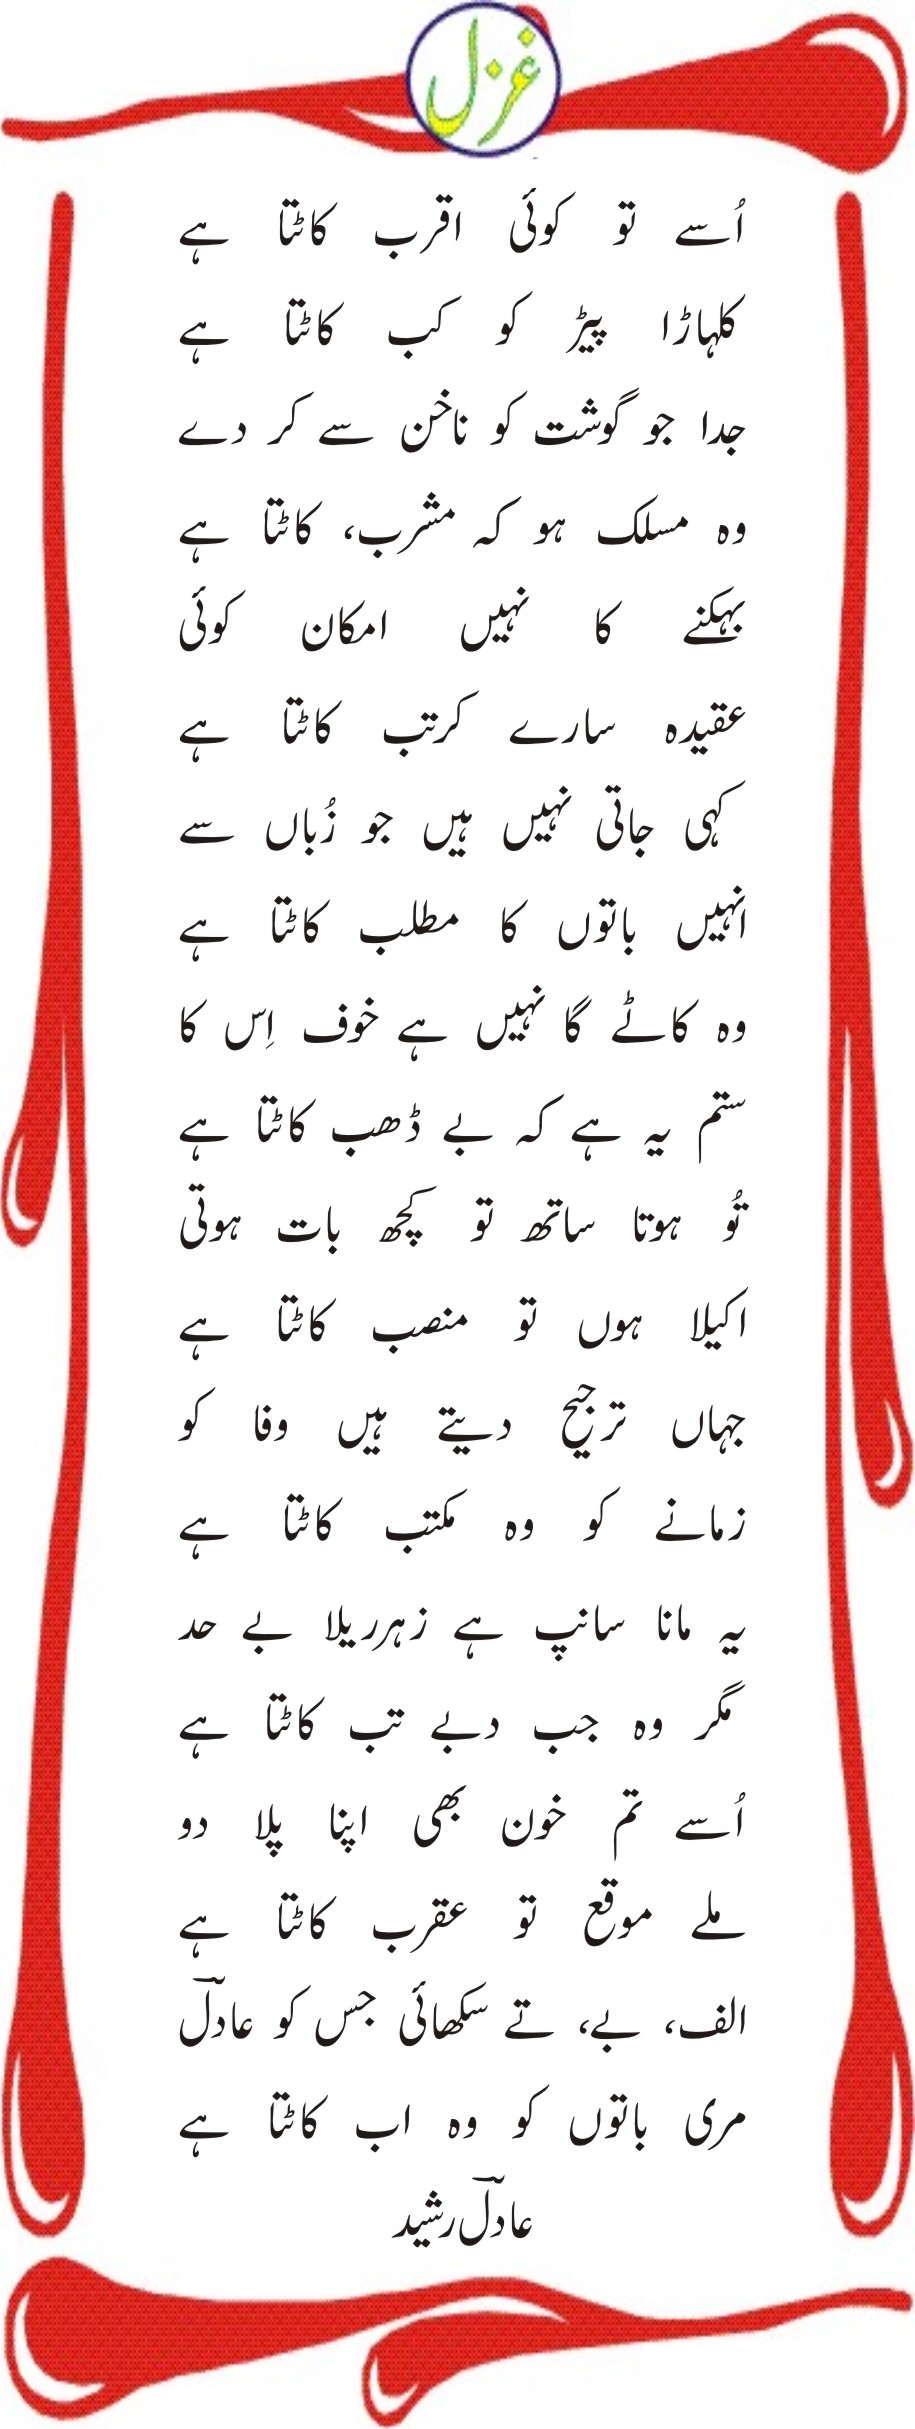 غزل
اُسے تو کوئی اقرب کاٹتا ہے
کلہاڑا پیڑ کو کب کاٹتا ہے
جدا جو گوشت کو ناخن سے کر دے
وہ مسلک ہو کہ مشرب، کاٹتا ہے
بہکنے کا نہیں امکان کوئی
عقیدہ سارے کرتب کاٹتا ہے
کہی جاتی نہیں ہیں جو زُباں سے
انہیں باتوں کا مطلب کاٹتا ہے
وہ کاٹے گا نہیں ہے خوف اِس کا
ستم یہ ہے کہ بے ڈھب کاٹتا ہے
تُو ہوتا ساتھ تو کچھ بات ہوتی
اکیلا ہوں تو منصب کاٹتا ہے
جہاں ترجیح دیتے ہیں وفا کو
زمانے کو وہ مکتب کاٹتا ہے
یہ مانا سانپ ہے زہرریلا بے حد
مگر وہ جب دبے تب کاٹتا ہے
اُسے تم خون بھی اپنا پلا دو
ملے موقع تو عقرب کاٹتا ہے
الف، بے، تے سکھائی جس کو عادلؔ
مری باتوں کو وہ اب کاٹتا ہے
عادلؔ رشید